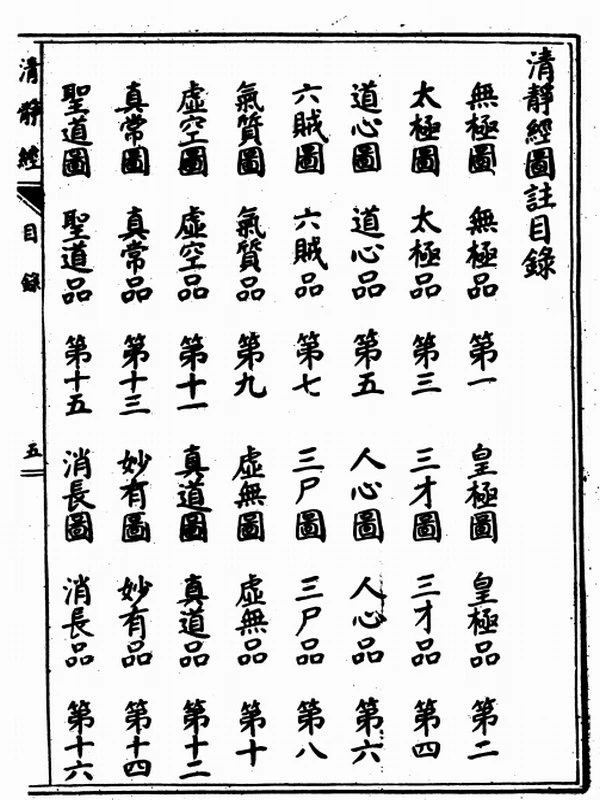 清靜經圖註目錄
無極圖 無極品 第一 皇極圖 皇極品 第二
太極圖 太極品 第三 三才圖 三才品 第四
道心圖 道心品 第五 人心圖 人心品 第六
六賊圖 六賊品 第七 三尸圖 三尸品 第八
氣質圖 氣質品 第九 虛無圖 虛無品 第十
虛空圖 虛空品 第十一 真道圖 真道品 第十二
真常圖 真常品 第十三 妙有圖 妙有品 第十四
聖道圖 聖道品 第十五 消長圖 消長品 第十六
清靜經 目錄 五